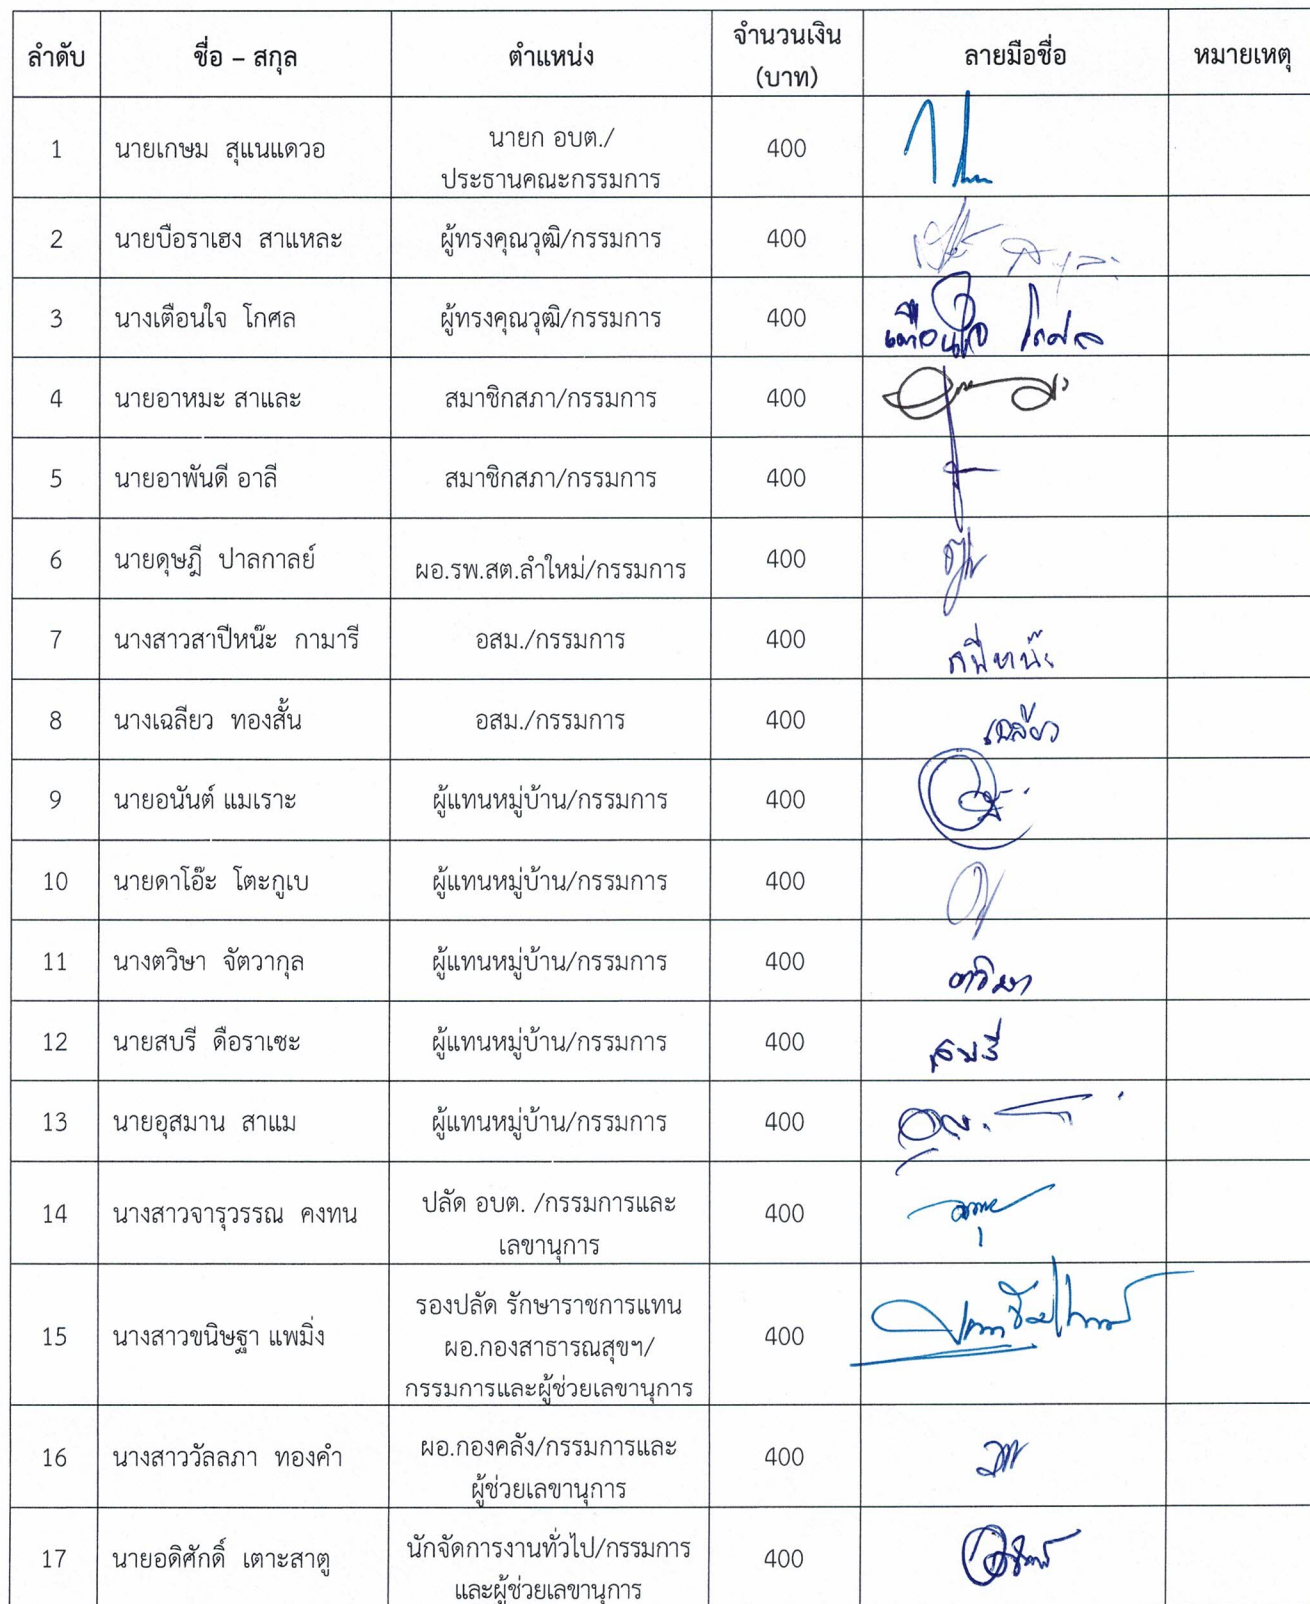 ลำดับ ชื่อ – สกุล ตำแหน่ง จำนวนเงิน (บาท) ลายมือชื่อ หมายเหตุ
1 นายเกษม สุแนแดวอ นายก อบต./ 400
ประธานคณะกรรมการ
2 นายบือราเฮง สาแหละ ผู้ทรงคุณวุฒิ/กรรมการ 400
3 นางเตือนใจ โกศล ผู้ทรงคุณวุฒิ/กรรมการ 400 เตือนใจ โกศล
4 นายอาหมะ สาและ สมาชิกสภา/กรรมการ 400
5 นายอาพันดี อาลี สมาชิกสภา/กรรมการ 400
6 นายดุษฎี ปาลกาลย์ ผอ.รพ.สต.ลำใหม่/กรรมการ 400
7 นางสาวสาปีหน๊ะ กามารี อสม./กรรมการ 400
8 นางเฉลียว ทองสั้น อสม./กรรมการ 400 เฉลียว
9 นายอนันต์ แมเราะ ผู้แทนหมู่บ้าน/กรรมการ 400
10 นายดาโอ๊ะ โตะกูเบ ผู้แทนหมู่บ้าน/กรรมการ 400
11 นางตวิษา จัตวากุล ผู้แทนหมู่บ้าน/กรรมการ 400 ตวิษา
12 นายสบรี ดือราเซะ ผู้แทนหมู่บ้าน/กรรมการ 400 สบรี
13 นายอุสมาน สาแม ผู้แทนหมู่บ้าน/กรรมการ 400
14 นางสาวจารุวรรณ คงทน ปลัด อบต. /กรรมการและ 400
เลขานุการ
15 นางสาวขนิษฐา แพมิ่ง รองปลัด รักษาราชการแทน 400
ผอ.กองสาธารณสุขฯ/
กรรมการและผู้ช่วยเลขานุการ
16 นางสาววัลลภา ทองคำ ผอ.กองคลัง/กรรมการและ 400
ผู้ช่วยเลขานุการ
17 นายอดิศักดิ์ เตาะสาตู นักจัดการงานทั่วไป/กรรมการ 400
และผู้ช่วยเลขานุการ